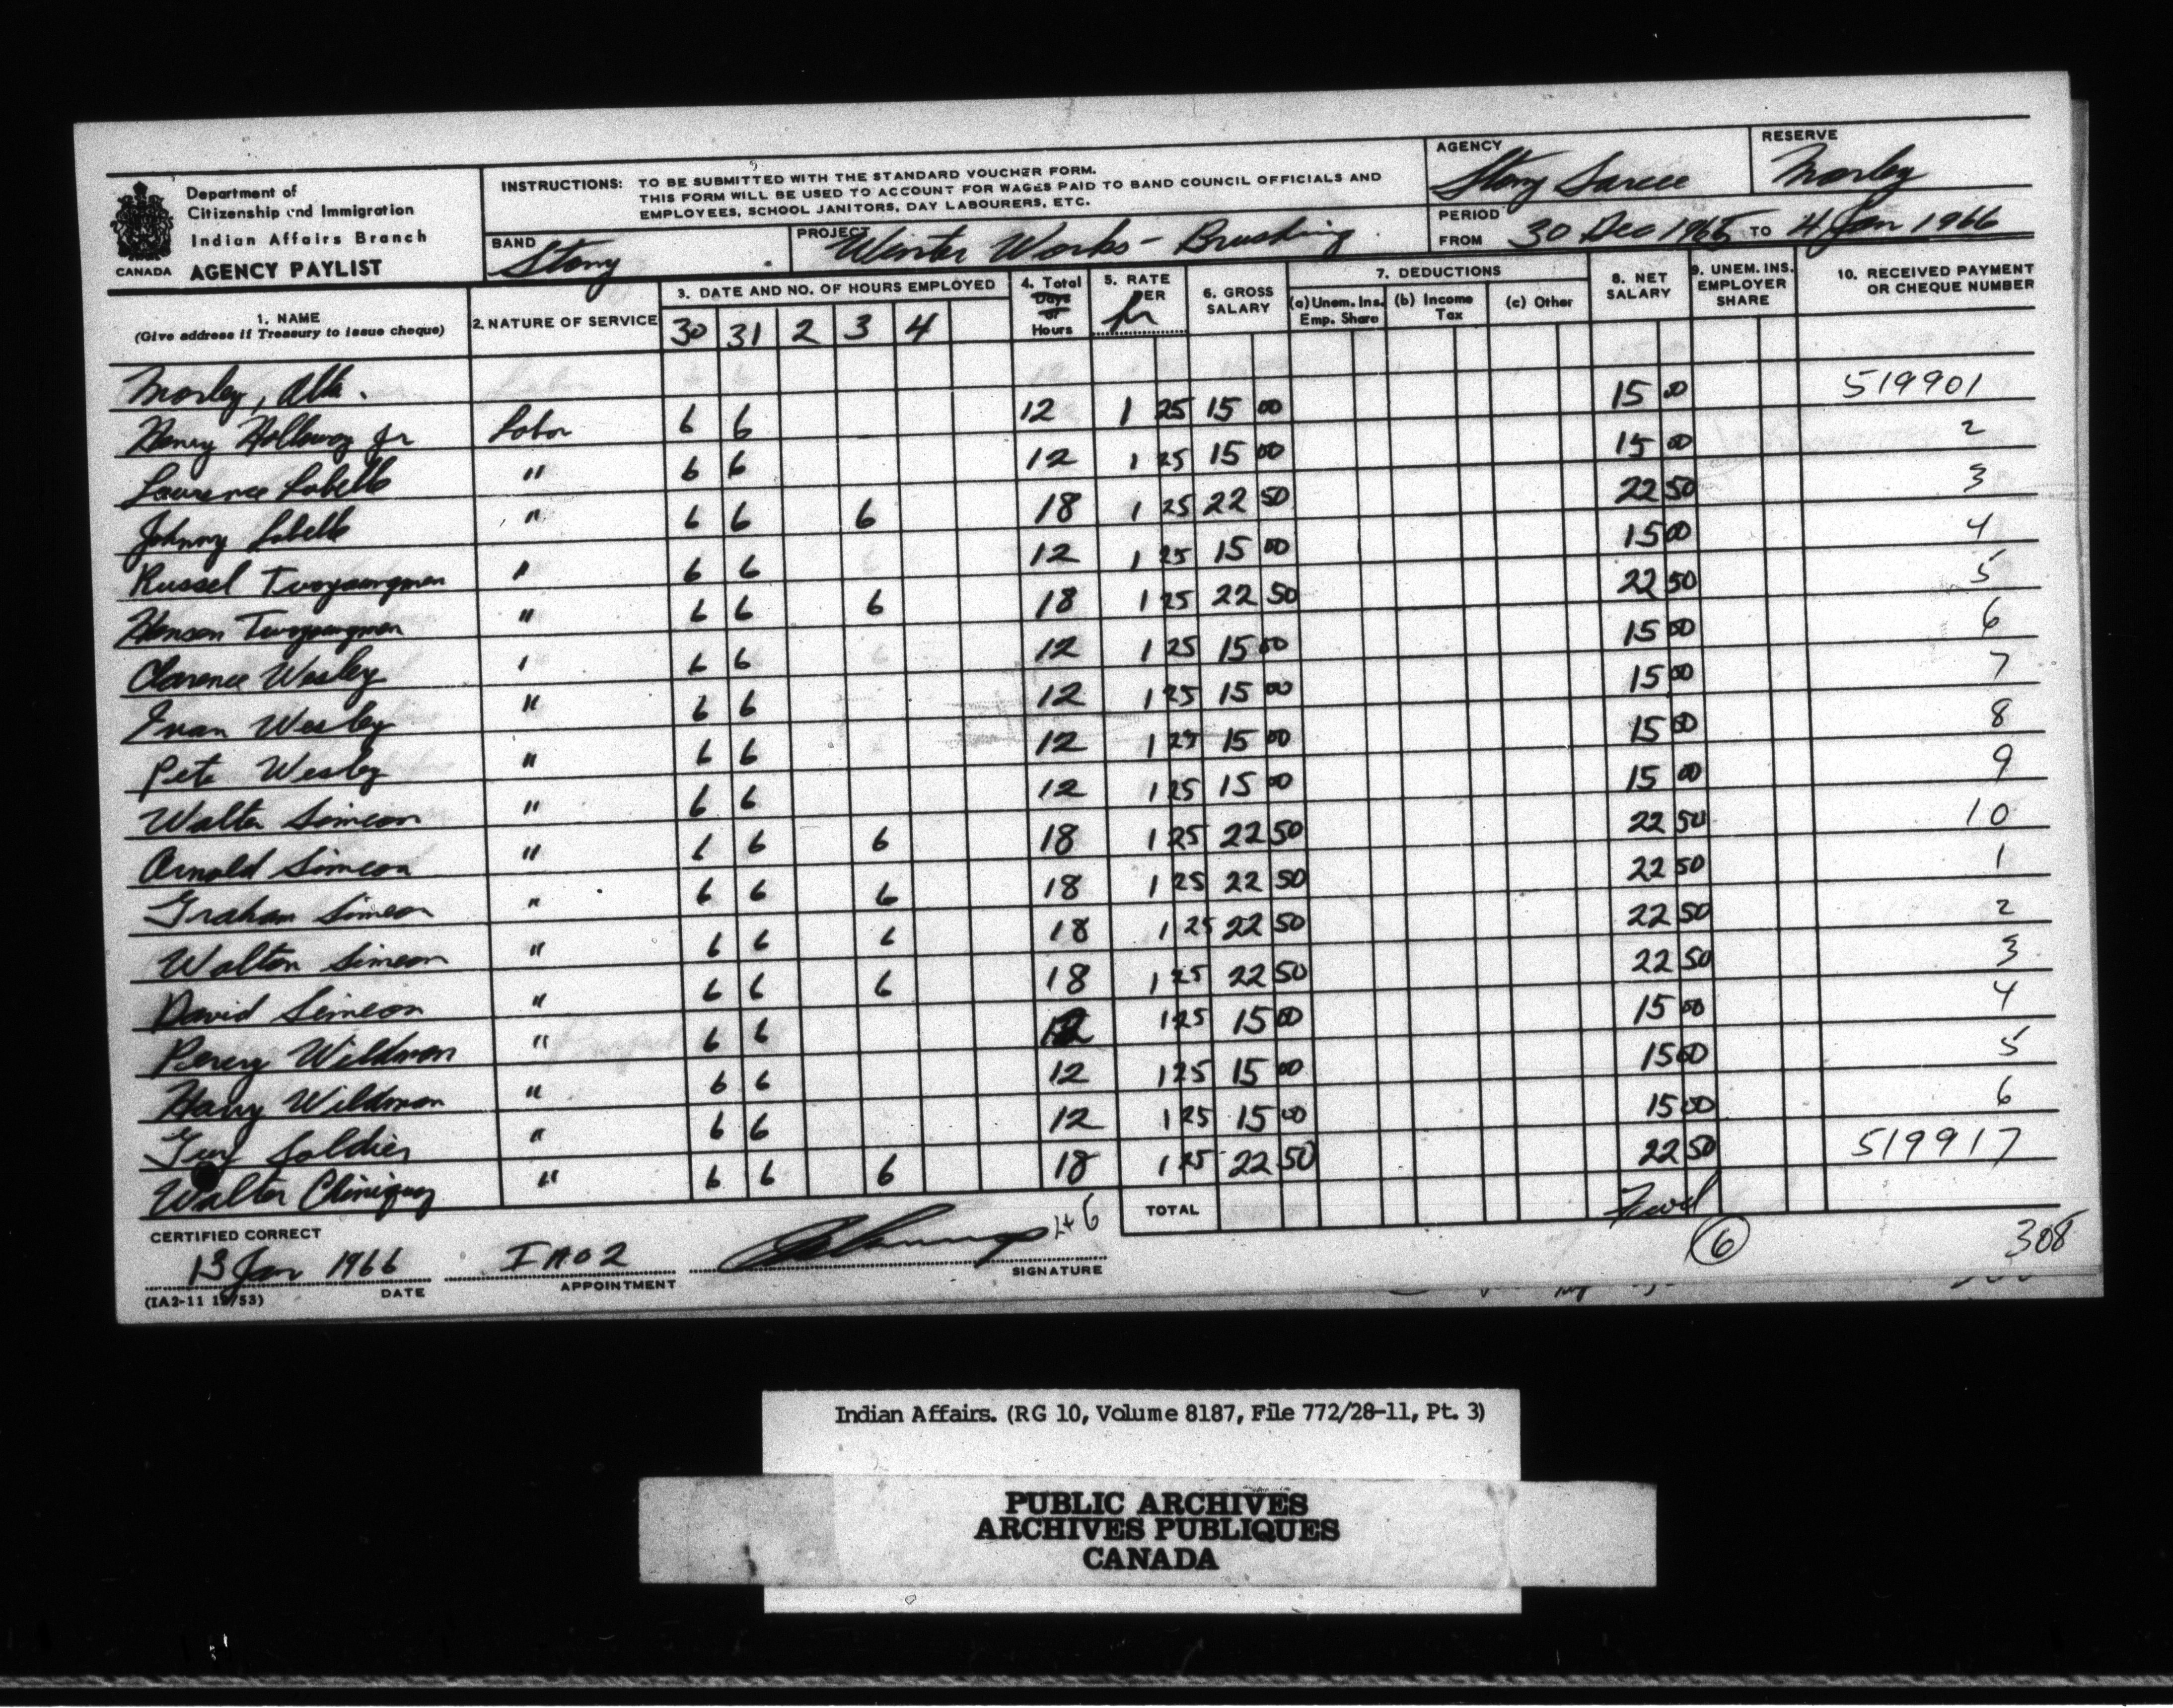 Department of
Citizenship and Immigration
Indian Affairs Branch
CANADA AGENCY PAYLIST
INSTRUCTIONS: TO BE SUBMITTED WITH THE STANDARD VOUCHER FORM.
THIS FORM WILL BE USED TO ACCOUNT FOR WAGES PAID TO BAND COUNCIL OFFICIALS AND
EMPLOYEES, SCHOOL JANITORS, DAY LABOURERS, ETC.
BAND Stony
PROJECT Winter Works - Brushing
AGENCY Stony Sarcee
RESERVE Morley
PERIOD
FROM 30 Dec 1965 TO 4 Jan 1966
1. NAME
(Give address if Treasury to issue cheque)
2. NATURE OF SERVICE
3. DATE AND NO. OF HOURS EMPLOYED
30 31 2 3 4
4. Total
Days
or
Hours
5. RATE
PER
hr
6. GROSS
SALARY
7. DEDUCTIONS
(a) Unem. Ins. Emp. Share
(b) Income Tax
(c) Other
8. NET
SALARY
9. UNEM. INS.
EMPLOYER
SHARE
10. RECEIVED PAYMENT
OR CHEQUE NUMBER
Morley, Alta.
Henry Holloway Jr Labor 6 6 12 1 25 15 00 15 00 519901
Laurence Labelle " 6 6 12 1 25 15 00 15 00 2
Johnny Labelle " 6 6 6 18 1 25 22 50 22 50 3
Russel Twoyoungmen " 6 6 12 1 25 15 00 15 00 4
Henson Twoyoungmen " 6 6 6 18 1 25 22 50 22 50 5
Clarence Wesley " 6 6 12 1 25 15 00 15 00 6
Ivan Wesley " 6 6 12 1 25 15 00 15 00 7
Pete Wesley " 6 6 12 1 25 15 00 15 00 8
Walter Simeon " 6 6 12 1 25 15 00 15 00 9
Arnold Simeon " 6 6 6 18 1 25 22 50 22 50 10
Graham Simeon " 6 6 6 18 1 25 22 50 22 50 1
Walton Simeon " 6 6 6 18 1 25 22 50 22 50 2
David Simeon " 6 6 6 18 1 25 22 50 22 50 3
Percy Wildman " 6 6 12 1 25 15 00 15 00 4
Harry Wildman " 6 6 12 1 25 15 00 15 00 5
Guy Soldier " 6 6 12 1 25 15 00 15 00 6
Walter Chiniquay " 6 6 6 18 1 25 22 50 22 50 519917
TOTAL Fwd
CERTIFIED CORRECT
13 Jan 1966 IA02
DATE APPOINTMENT SIGNATURE
6
308
(IA2-11 12/53)
Indian Affairs. (RG 10, Volume 8187, File 772/28-11, Pt. 3)
PUBLIC ARCHIVES
ARCHIVES PUBLIQUES
CANADA